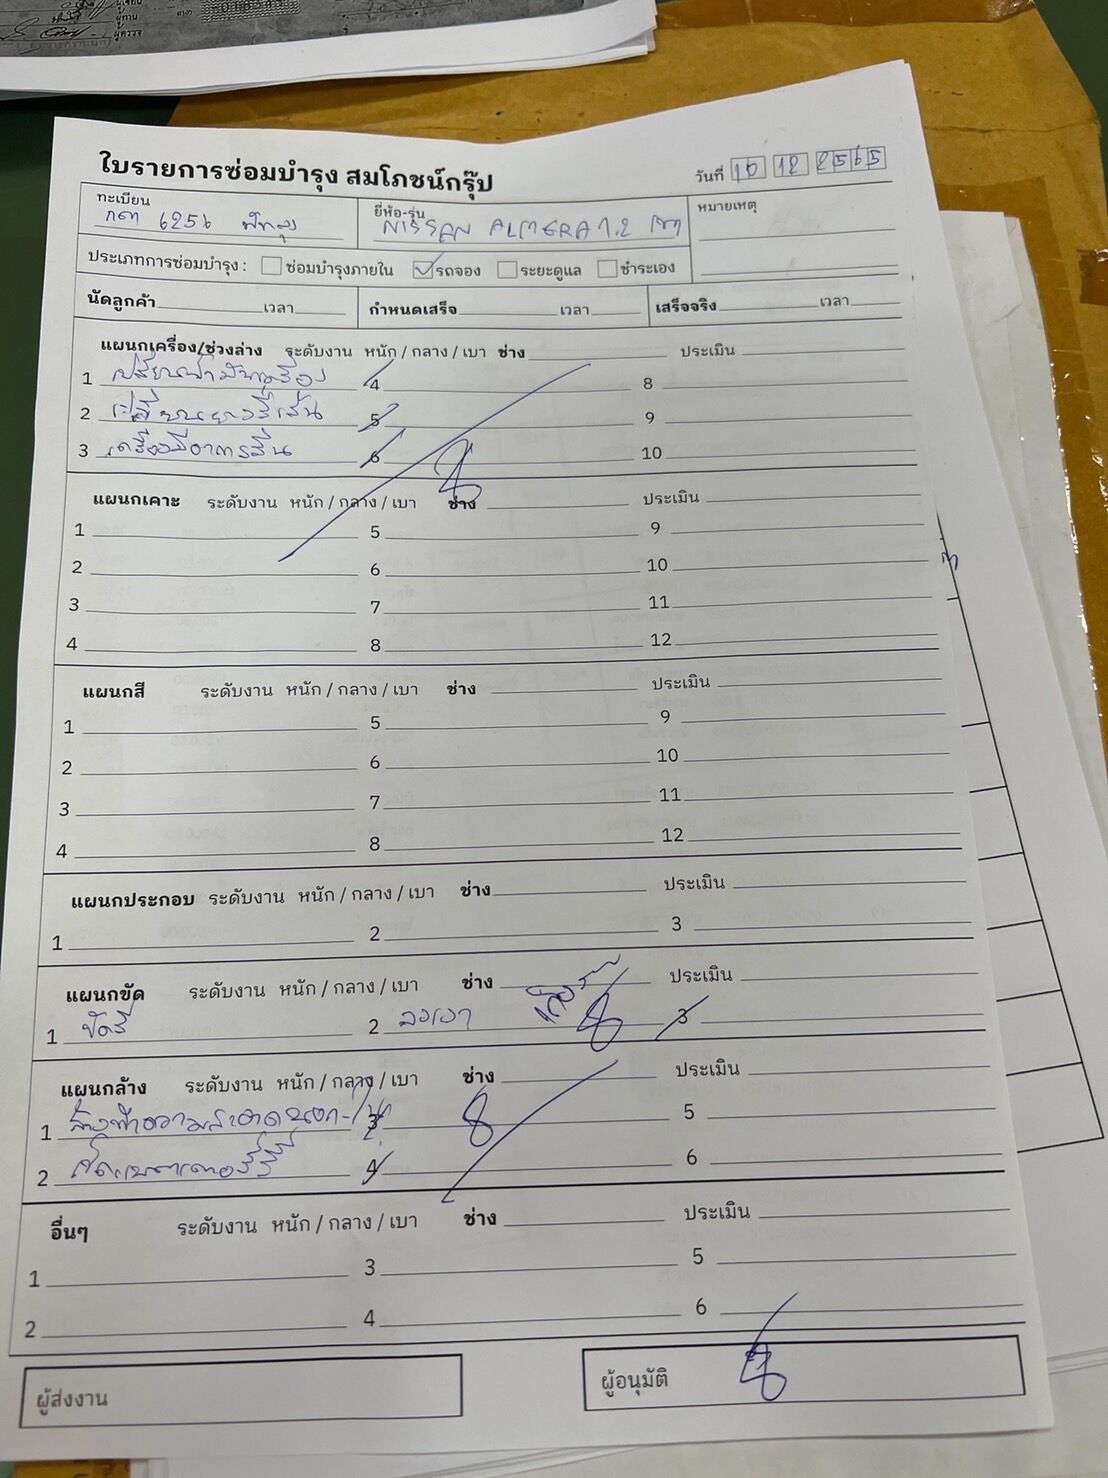 ผู้เขียน
ผู้ทาน
ผู้ตรวจ
ใบรายการซ่อมบำรุง สมโภชน์กรุ๊ป
วันที่ 10 12 2565
ทะเบียน
ยี่ห้อ-รุ่น
หมายเหตุ
กตา 6256 พัทลุง
NISSAN ALMERA 1.2 เทา
ประเภทการซ่อมบำรุง : ซ่อมบำรุงภายใน รถจอง ระยะดูแล ชำระเอง
นัดลูกค้า เวลา กำหนดเสร็จ เวลา เสร็จจริง เวลา
แผนกเครื่อง/ช่วงล่าง ระดับงาน หนัก / กลาง / เบา ช่าง ประเมิน
1 เปลี่ยนน้ำมันเครื่อง 4 8
2 เปลี่ยนยาง 5 9
3 เครื่องมีอาการสั่น 6 10
แผนกเคาะ ระดับงาน หนัก / กลาง / เบา ช่าง ประเมิน
1 5 9
2 6 10
3 7 11
4 8 12
แผนกสี ระดับงาน หนัก / กลาง / เบา ช่าง ประเมิน
1 5 9
2 6 10
3 7 11
4 8 12
แผนกประกอบ ระดับงาน หนัก / กลาง / เบา ช่าง ประเมิน
1 2 3
แผนกขัด ระดับงาน หนัก / กลาง / เบา ช่าง ประเมิน
1 ขัดสี 2 ลงเงา 3
แผนกล้าง ระดับงาน หนัก / กลาง / เบา ช่าง ประเมิน
1 ล้างทำความสะอาดนอก-ใน 3 5
2 เช็คแบตเตอร์รี่ 4 6
อื่นๆ ระดับงาน หนัก / กลาง / เบา ช่าง ประเมิน
1 3 5
2 4 6
ผู้ส่งงาน
ผู้อนุมัติ